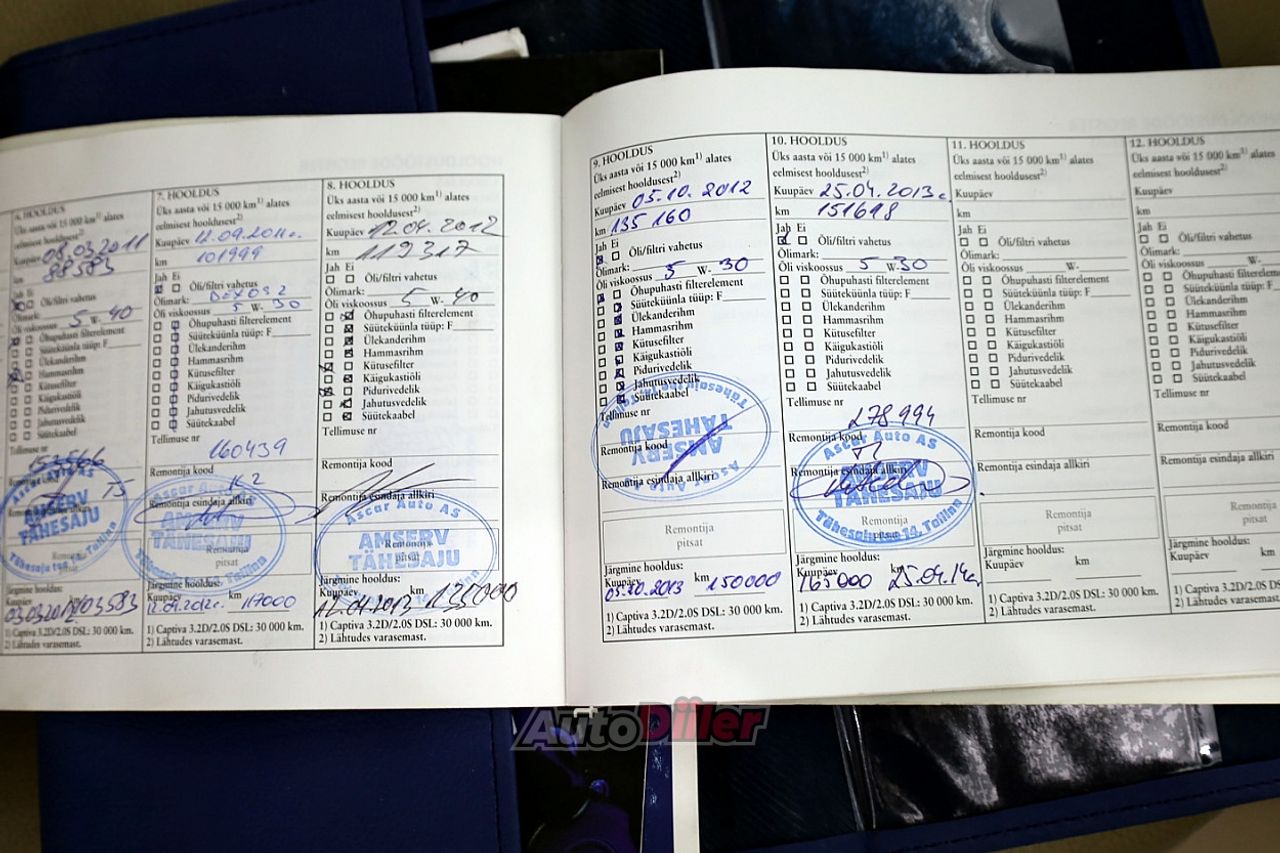 6. HOOLDUS
Üks aasta või 15 000 km1) alates
eelmisest hooldusest2)
Kuupäev 08.03.2011
km 88583
Jah Ei
Õli/filtri vahetus
Õlimark:
Õli viskoossus 5 W- 40
Õhupuhasti filterelement
Süüteküünla tüüp: F
Ülekanderihm
Hammasrihm
Kütusefilter
Käigukastiõli
Pidurivedelik
Jahutusvedelik
Süütekaabel
Tellimuse nr
Ascar Auto AS
AMSERV
TÄHESAJU
Tähesaju tee, Tallinn
Remontija
pitsat
Järgmine hooldus:
Kuupäev km
03.03.2012 103583
1) Captiva 3.2D/2.0S DSL: 30 000 km.
2) Lähtudes varasemast.
7. HOOLDUS
Üks aasta või 15 000 km1) alates
eelmisest hooldusest2)
Kuupäev 12.09.2011
km 101999
Jah Ei
Õli/filtri vahetus
Õlimark:
Õli viskoossus 5 W- 30
Õhupuhasti filterelement
Süüteküünla tüüp: F
Ülekanderihm
Hammasrihm
Kütusefilter
Käigukastiõli
Pidurivedelik
Jahutusvedelik
Süütekaabel
Tellimuse nr
160439
Remontija kood
Remontija esindaja allkiri
Ascar Auto AS
AMSERV
TÄHESAJU
Remontija
pitsat
Järgmine hooldus:
Kuupäev km
12.09.2012. 117000
1) Captiva 3.2D/2.0S DSL: 30 000 km.
2) Lähtudes varasemast.
8. HOOLDUS
Üks aasta või 15 000 km1) alates
eelmisest hooldusest2)
Kuupäev 12.04.2012
km 119317
Jah Ei
Õli/filtri vahetus
Õlimark:
Õli viskoossus 5 W- 40
Õhupuhasti filterelement
Süüteküünla tüüp: F
Ülekanderihm
Hammasrihm
Kütusefilter
Käigukastiõli
Pidurivedelik
Jahutusvedelik
Süütekaabel
Tellimuse nr
Remontija kood
Remontija esindaja allkiri
Ascar Auto AS
AMSERV
TÄHESAJU
Remontija
pitsat
Tähesaju tee 14, Tallinn
Järgmine hooldus:
Kuupäev km
12.04.2013 130000
1) Captiva 3.2D/2.0S DSL: 30 000 km.
2) Lähtudes varasemast.
9. HOOLDUS
Üks aasta või 15 000 km1) alates
eelmisest hooldusest2)
Kuupäev 05.10.2012
km 135 160
Jah Ei
Õli/filtri vahetus
Õlimark:
Õli viskoossus 5 W- 30
Õhupuhasti filterelement
Süüteküünla tüüp: F
Ülekanderihm
Hammasrihm
Kütusefilter
Käigukastiõli
Pidurivedelik
Jahutusvedelik
Süütekaabel
Tellimuse nr
AMSERV
TÄHESAJU
Ascar Auto AS
Remontija kood
Remontija esindaja allkiri
Remontija
pitsat
Järgmine hooldus:
Kuupäev km
05.10.2013 150000
1) Captiva 3.2D/2.0S DSL: 30 000 km.
2) Lähtudes varasemast.
10. HOOLDUS
Üks aasta või 15 000 km1) alates
eelmisest hooldusest2)
Kuupäev 25.04.2013
km 151618
Jah Ei
Õli/filtri vahetus
Õlimark:
Õli viskoossus 5 W- 30
Õhupuhasti filterelement
Süüteküünla tüüp: F
Ülekanderihm
Hammasrihm
Kütusefilter
Käigukastiõli
Pidurivedelik
Jahutusvedelik
Süütekaabel
Tellimuse nr
278994
Remontija kood
Remontija esindaja allkiri
Ascar Auto AS
AMSERV
TÄHESAJU
Tähesaju tee 14, Tallinn
Remontija
pitsat
Järgmine hooldus:
Kuupäev km
165000 25.04.14a
1) Captiva 3.2D/2.0S DSL: 30 000 km.
2) Lähtudes varasemast.
11. HOOLDUS
Üks aasta või 15 000 km1) alates
eelmisest hooldusest2)
Kuupäev
km
Jah Ei
Õli/filtri vahetus
Õlimark:
Õli viskoossus W-
Õhupuhasti filterelement
Süüteküünla tüüp: F
Ülekanderihm
Hammasrihm
Kütusefilter
Käigukastiõli
Pidurivedelik
Jahutusvedelik
Süütekaabel
Tellimuse nr
Remontija kood
Remontija esindaja allkiri
Remontija
pitsat
Järgmine hooldus:
Kuupäev km
1) Captiva 3.2D/2.0S DSL: 30 000 km.
2) Lähtudes varasemast.
12. HOOLDUS
Üks aasta või 15 000 km1) alates
eelmisest hooldusest2)
Kuupäev
km
Jah Ei
Õli/filtri vahetus
Õlimark:
Õli viskoossus W-
Õhupuhasti filterelement
Süüteküünla tüüp: F
Ülekanderihm
Hammasrihm
Kütusefilter
Käigukastiõli
Pidurivedelik
Jahutusvedelik
Süütekaabel
Tellimuse nr
Remontija kood
Remontija esindaja allkiri
Remontija
pitsat
Järgmine hooldus:
Kuupäev km
1) Captiva 3.2D/2.0S DSL: 30 000
2) Lähtudes varasemast.
AutoDiiler